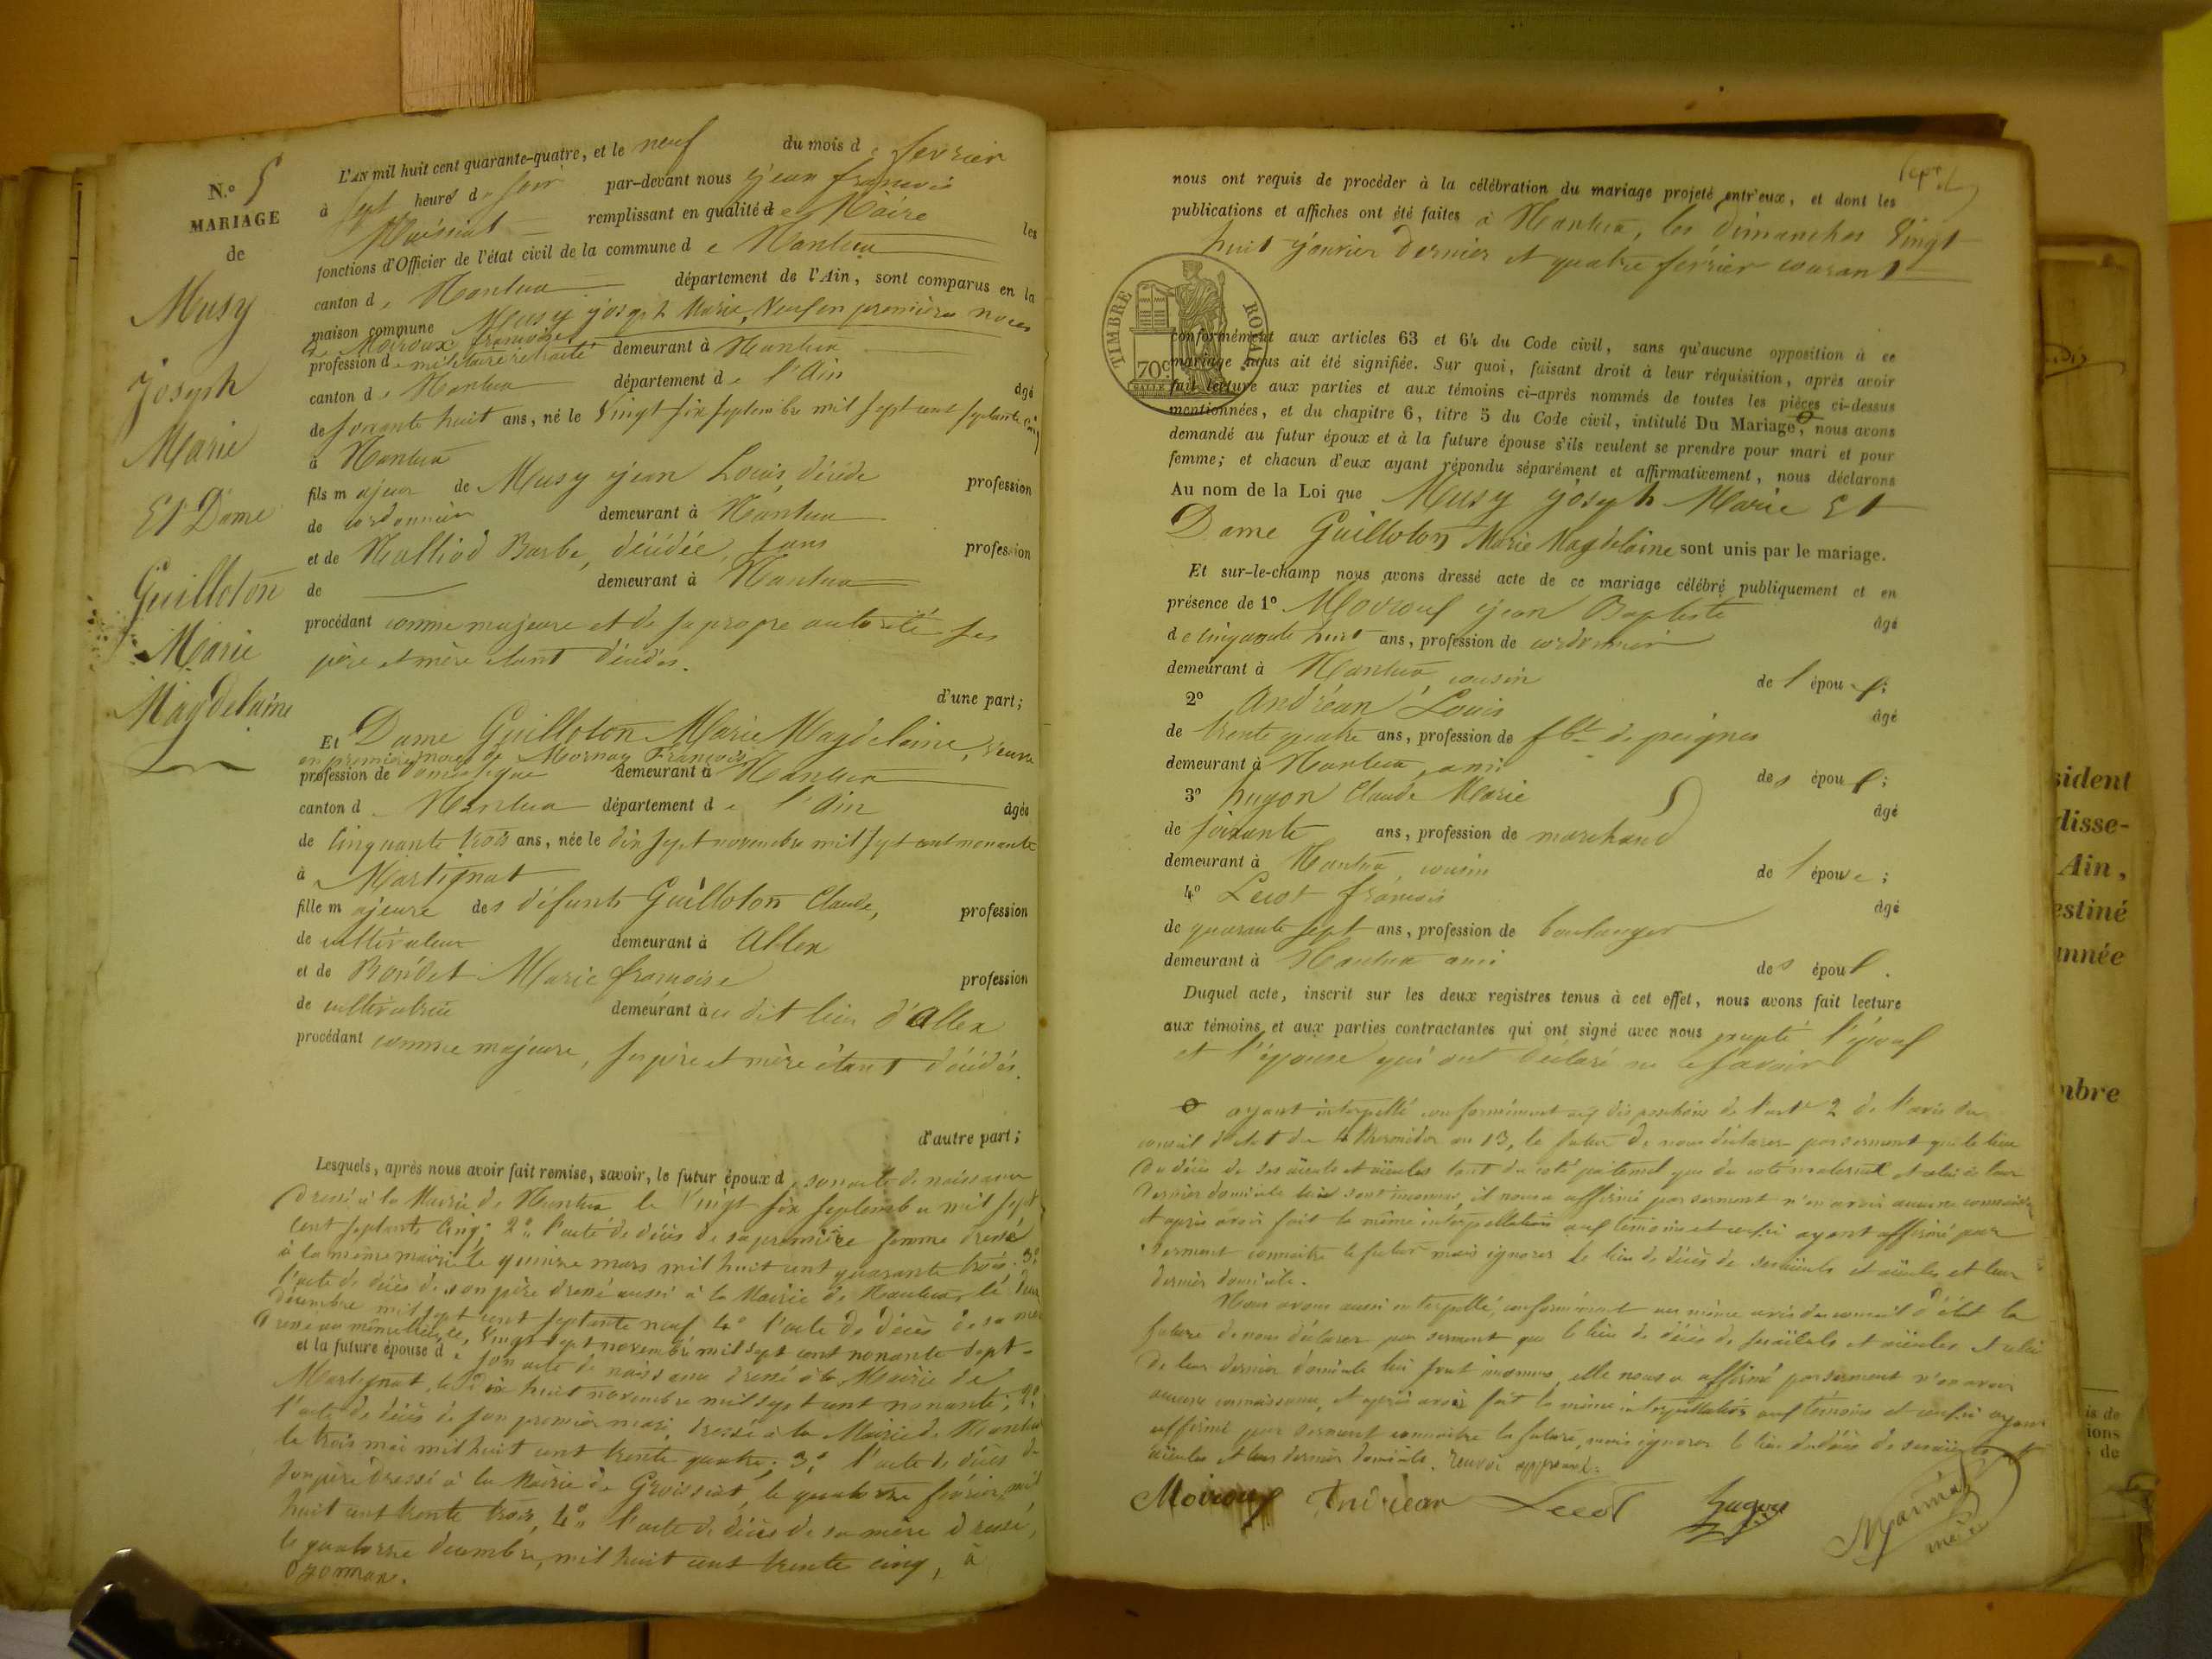 N.º 5
MARIAGE
de
Musy
Joseph
Marie
Et Dame
Guilloton
Marie
Magdelaine
L'AN mil huit cent quarante-quatre, et le neuf du mois de fevrier
à sept heures de soir par-devant nous jean françois
remplissant en qualité de Maire les
fonctions d'Officier de l'état civil de la commune de Nantua
canton de Nantua département de l'Ain, sont comparus en la
maison commune Musy joseph Marie, Veuf en premières noces
de Moiroux françoise
profession de militaire retraité demeurant à Nantua
canton de Nantua département de l'Ain âgé
de soixante huit ans, né le Vingt six septembre mil sept cent septante cinq
à Nantua
fils majeur de Musy jean Louis, décédé profession
de cordonnier demeurant à Nantua
et de Malliod Barbe, décédée, sans profession
de demeurant à Nantua
procédant comme majeure et de sa propre autorité ses
père et mère étant décédés.
d'une part;
Et Dame Guilloton Marie Magdelaine, veuve
en premières noces de Mornay François
profession de domestique demeurant à Nantua
canton de Nantua département de l'Ain âgée
de cinquante trois ans, née le dix sept novembre mil sept cent nonante
à Martignat
fille majeure des défunts Guilloton Claude, profession
de cultivateur demeurant à Allex
et de Bondet Marie françoise profession
de cultivatrice demeurant à u dit lieu d'Allex
procédant comme majeure, ses père et mère étant décédés.
d'autre part;
Lesquels, après nous avoir fait remise, savoir, le futur époux de son acte de naissance
dressé à la Mairie de Nantua le Vingt six septembre mil sept
cent septante cinq; 2º l'acte de décès de sa première femme dressé
à la même mairie le quinze mars mil huit cent quarante trois. 3º
l'acte de décès de son père dressé aussi à la Mairie de Nantua, le deux
décembre mil sept cent septante neuf 4º l'acte de décès de sa mère
dressé au même lieu le Vingt sept novembre mil sept cent nonante sept
et la future épouse de son acte de naissance dressé à la Mairie de
Martignat, le dix huit novembre mil sept cent nonante; 2º
l'acte de décès de son premier mari, dressé à la Mairie de Nantua
le trois mai mil huit cent trente quatre; 3º l'acte de décès de
son père dressé à la Mairie de Groissiat, le quatorze février mil
huit cent trente trois, 4º l'acte de décès de sa mère dressé,
le quatorze décembre, mil huit cent trente cinq, à
Oyonnax.
nous ont requis de procéder à la célébration du mariage projeté entr'eux, et dont les
publications et affiches ont été faites à Nantua, les dimanches Vingt
huit janvier dernier et quatre février courant
TIMBRE ROYAL
70c
conformément aux articles 63 et 64 du Code civil, sans qu'aucune opposition à ce
mariage nous ait été signifiée. Sur quoi, faisant droit à leur réquisition, après avoir
fait lecture aux parties et aux témoins ci-après nommés de toutes les pièces ci-dessus
mentionnées, et du chapitre 6, titre 5 du Code civil, intitulé Du Mariage, nous avons
demandé au futur époux et à la future épouse s'ils veulent se prendre pour mari et pour
femme; et chacun d'eux ayant répondu séparément et affirmativement, nous déclarons
Au nom de la Loi que Musy joseph Marie Et
Dame Guilloton Marie Magdelaine sont unis par le mariage.
Et sur-le-champ nous avons dressé acte de ce mariage célébré publiquement et en
présence de 1º Moiroux jean Baptiste âgé
de cinquante huit ans, profession de cordonnier
demeurant à Nantua, cousin de l'époux;
2º Andréan Louis âgé
de trente quatre ans, profession de fbt de peignes
demeurant à Nantua, ami des époux;
3º hugon Claude Marie âgé
de soixante ans, profession de marchand
demeurant à Nantua cousin de l'épouse;
4º Lecot françois âgé
de quarante sept ans, profession de boulanger
demeurant à Nantua ami des époux.
Duquel acte, inscrit sur les deux registres tenus à cet effet, nous avons fait lecture
aux témoins et aux parties contractantes qui ont signé avec nous excepté l'époux
et l'épouse qui ont déclaré ne le savoir
ayant interpellé conformément aux dispositions de l'art 2 de l'avis du
conseil d'état du 4 thermidor an 13, le futur de nous déclarer par serment que le lieu
du décès de ses aïeuls et aïeules tant du coté paternel que du coté maternel et celui de leur
dernier domicile lui sont inconnus, il nous a affirmé par serment n'en avoir aucune connaissance
et après avoir fait la même interpellation aux témoins et ceux-ci ayant affirmé par
serment connaitre le futur mais ignorer le lieu de décès de ses aïeuls et aïeules et leur
dernier domicile.
Nous avons aussi interpellé, conformément au même avis du conseil d'état la
future de nous déclarer par serment que le lieu de décès de ses aïeuls et aïeules et celui
de leur dernier domicile lui sont inconnus, elle nous a affirmé par serment n'en avoir
aucune connaissance, et après avoir fait la même interpellation aux témoins et ceux-ci ayant
affirmé par serment connaitre la future, mais ignorer le lieu de décès de ses aïeuls et
aïeules et leur dernier domicile. renvoi approuvé.
Moiroux Andréan Lecot hugon
maire
sident
disse-
Ain,
estiné
année
mbre